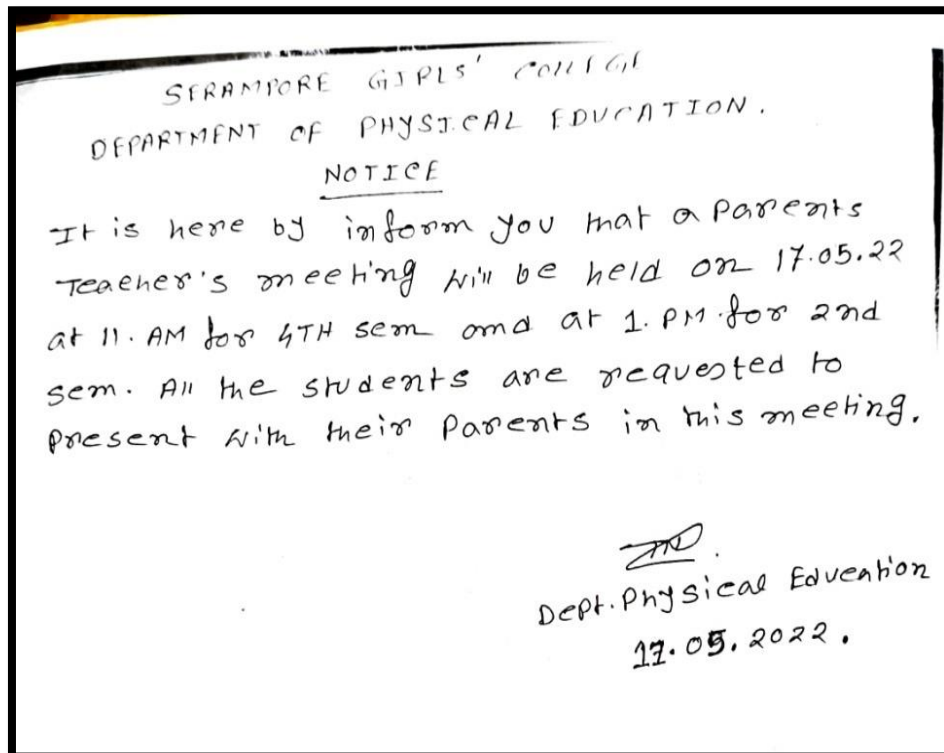 SERAMPORE GIRLS' COLLEGE
DEPARTMENT OF PHYSICAL EDUCATION.
NOTICE
It is here by inform you that a Parents
Teacher's meeting will be held on 17.05.22
at 11. AM for 4TH sem and at 1. PM for 2nd
sem. All the students are requested to
Present with their Parents in this meeting.
Dept. Physical Education
17.05.2022.